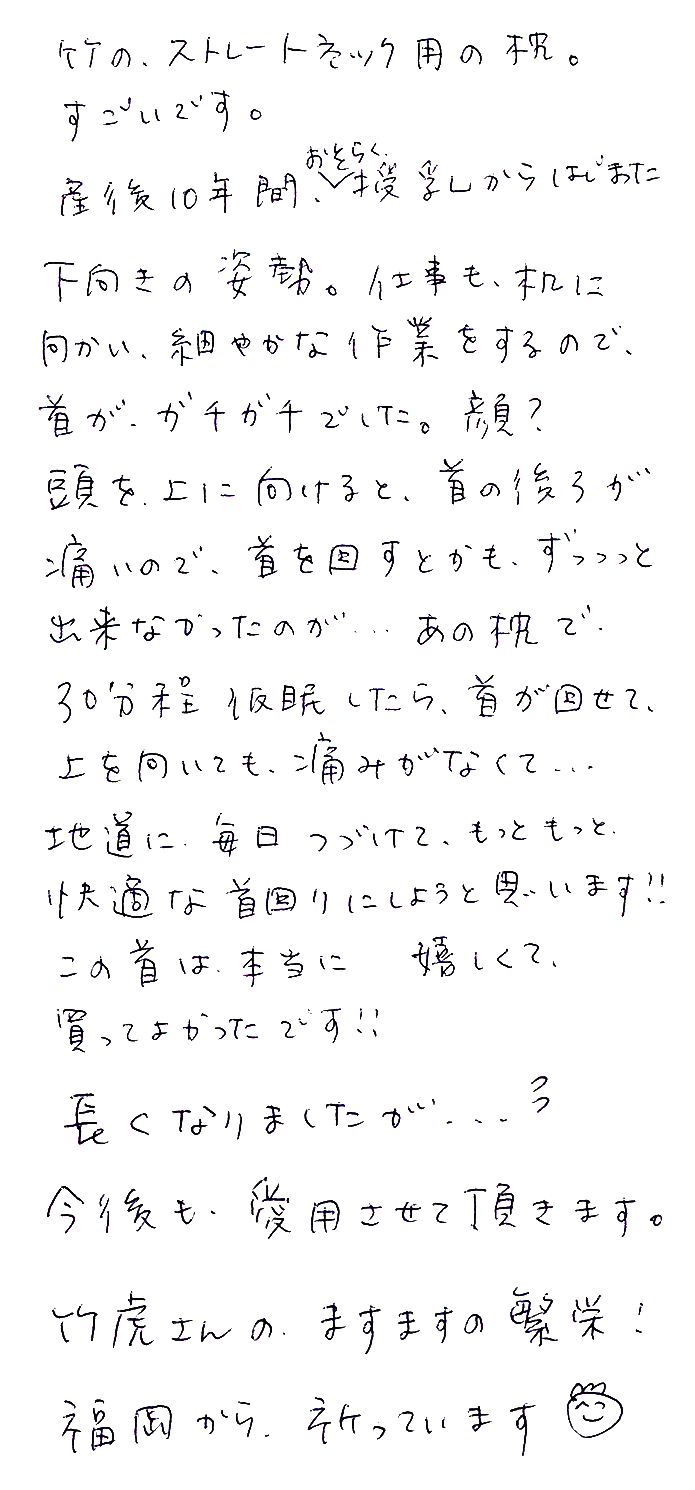 竹の、ストレートネック用の枕。
すごいです。
産後10年間、おそらく授乳からはじまった
下向きの姿勢。仕事も、机に
向かい、細やかな作業をするので、
首が、ガチガチでした。顔？
頭を、上に向けると、首の後ろが
痛いので、首を回すとかも、ずっっっと
出来なかったのが… あの枕で、
30分程仮眠したら、首が回せて、
上を向いても、痛みがなくて…
地道に、毎日つづけて、もっともっと、
快適な首回りにしようと思います!!
この首は、本当に 嬉しくて、
買ってよかったです!!
長くなりましたが...
今後も、愛用させて頂きます。
竹虎さんの、ますますの繁栄！
福岡から、祈っています